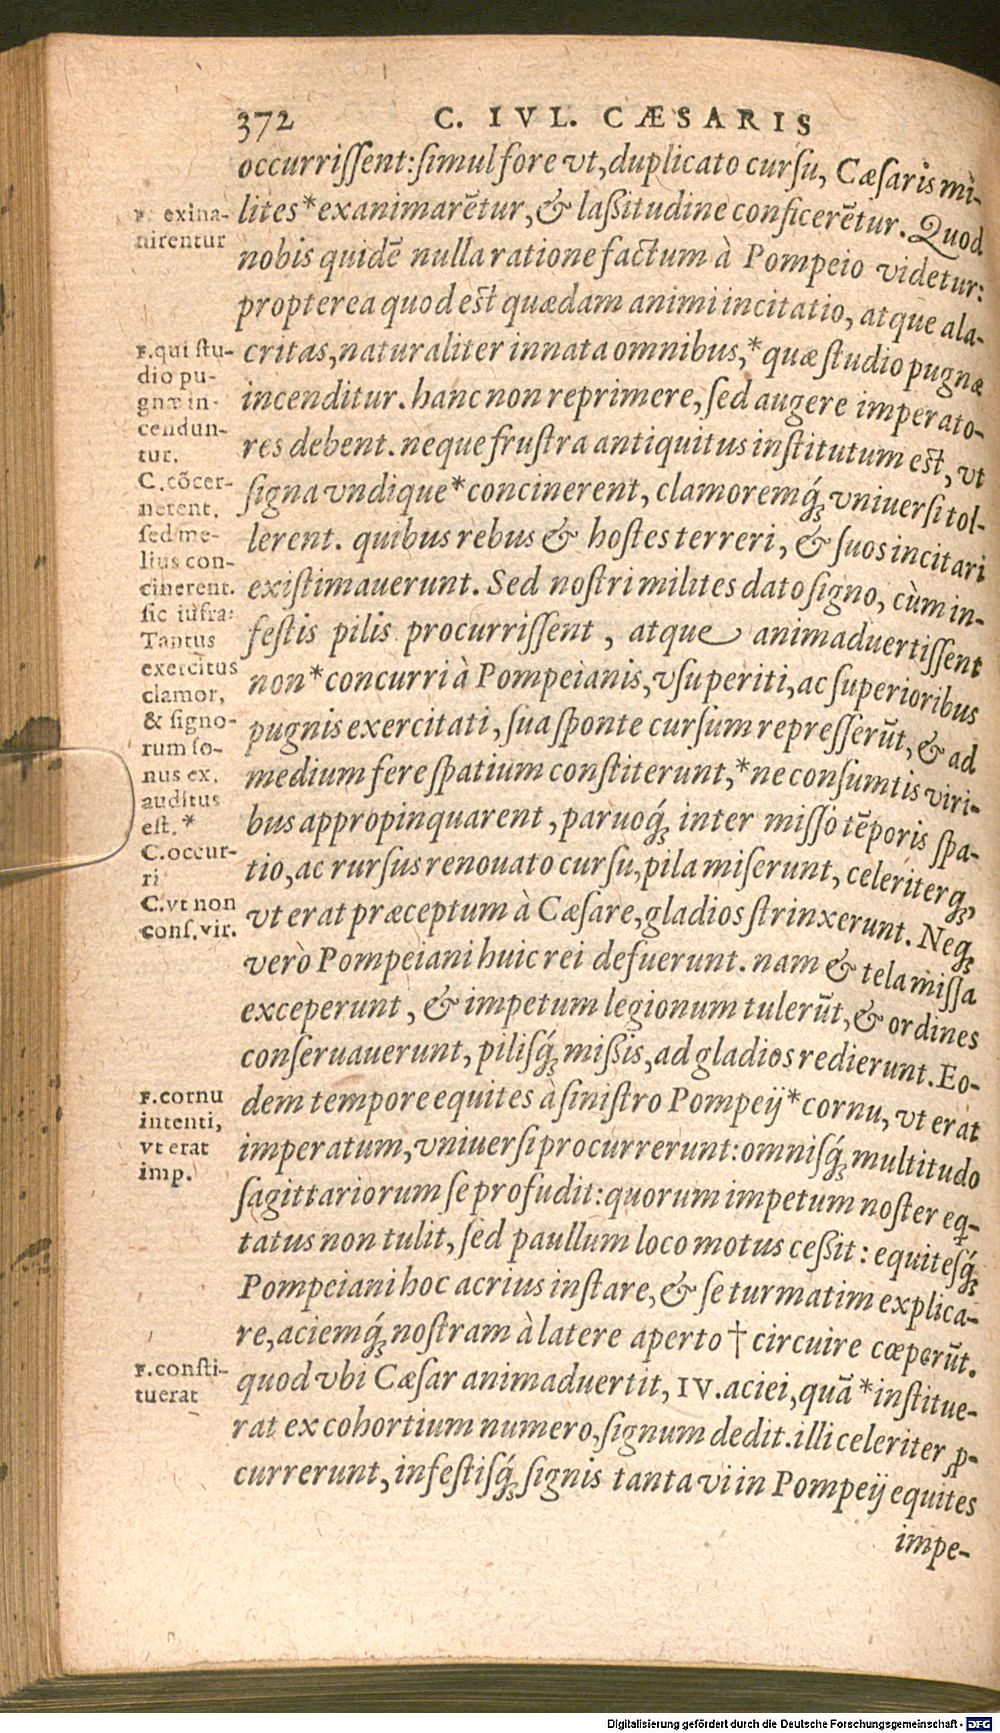 372 C. IVL. CÆSARIS
occurriſſent: ſimul fore vt, duplicato curſu, Cæſaris mi-
lites * exanimarẽtur, & laſſitudine conficerẽtur. Quod
nobis quidẽ nulla ratione factum à Pompeio videtur:
propterea quod est quædam animi incitatio, atque ala-
critas, naturaliter innata omnibus, * quæ ſtudio pugnæ
incenditur. hanc non reprimere, ſed augere imperato-
res debent. neque fruſtra antiquitus inſtitutum eſt, vt
ſigna vndique * concinerent, clamoremq́; vniuerſi tol-
lerent. quibus rebus & hoſtes terreri, & ſuos incitari
exiſtimauerunt. Sed noſtri milites dato ſigno, cùm in-
feſtis pilis procurriſſent, atque animaduertiſſent
non * concurri à Pompeianis, vſu periti, ac ſuperioribus
pugnis exercitati, ſua ſponte curſum repreſſerũt, & ad
medium fere ſpatium conſtiterunt, * ne conſumtis viri-
bus appropinquarent, paruoq́; inter miſſo tẽporis ſpa-
tio, ac rurſus renouato curſu, pila miſerunt, celeriterq́;
vt erat præceptum à Cæſare, gladios ſtrinxerunt. Neq;
verò Pompeiani huic rei defuerunt. nam & tela miſſa
exceperunt, & impetum legionum tulerũt, & ordines
conſeruauerunt, piliſq́; miſſis, ad gladios redierunt. Eo-
dem tempore equites à ſiniſtro Pompeij * cornu, vt erat
imperatum, vniuerſi procurrerunt: omniſq́; multitudo
ſagittariorum ſe profudit: quorum impetum noſter eq̃-
tatus non tulit, ſed paullum loco motus ceſſit: equiteſq́;
Pompeiani hoc acrius inſtare, & ſe turmatim explica-
re, aciemq́; noſtram à latere aperto † circuire cœperũt.
quod vbi Cæſar animaduertit, IV. aciei, quã * inſtitue-
rat ex cohortium numero, ſignum dedit. illi celeriter ꝓ-
currerunt, infeſtiſq́; ſignis tanta vi in Pompeij equites
impe-
F. exina-
nirentur
F. qui ſtu-
dio pu-
gnæ in-
cendun-
tur.
C. cõcer-
nerent.
ſed me-
lius con-
cinerent.
ſic iufra:
Tantus
exercitus
clamor,
& ſigno-
rum ſo-
nus ex.
auditus
eſt. *
C. occur-
ri
C. vt non
conſ. vir.
F. cornu
intenti,
vt erat
imp.
F. conſti-
tuerat
Digitalisierung gefördert durch die Deutsche Forschungsgemeinschaft - DFG